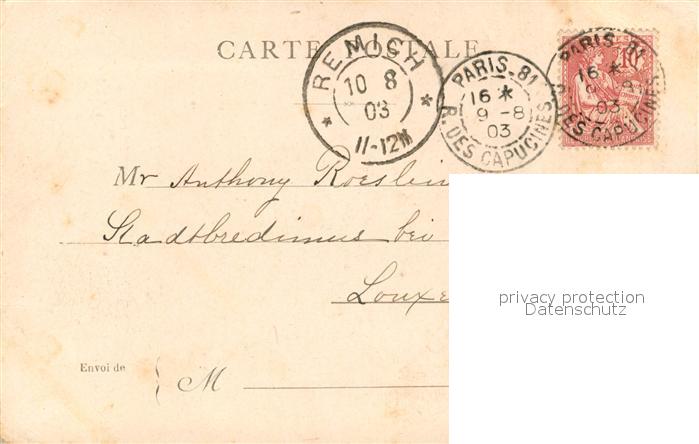 CARTE POSTALE
REMICH
10 8
03
11-12M
PARIS-81
16 *
9 -8
03
R. DES CAPUCINES
10
PARIS-81
16 *
9
03
R. DES CAPUCINES
Mr Anthony
Stadtbredimus bei
Louxe
privacy protection
Datenschutz
Envoi de
M